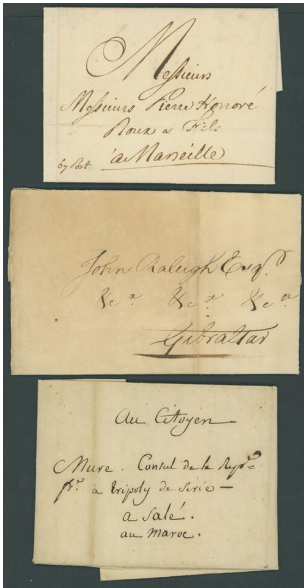 Messieurs
Messieurs Pierre Honoré
Roux & Fils
à Marseille
by Post
John Raleigh Esqr.
&ca &ca &ca
Gibraltar
Au Citoyen
Mure. Consul de la Repe.
fse. à Tripoly de Sirie —
a Salé.
au Maroc.